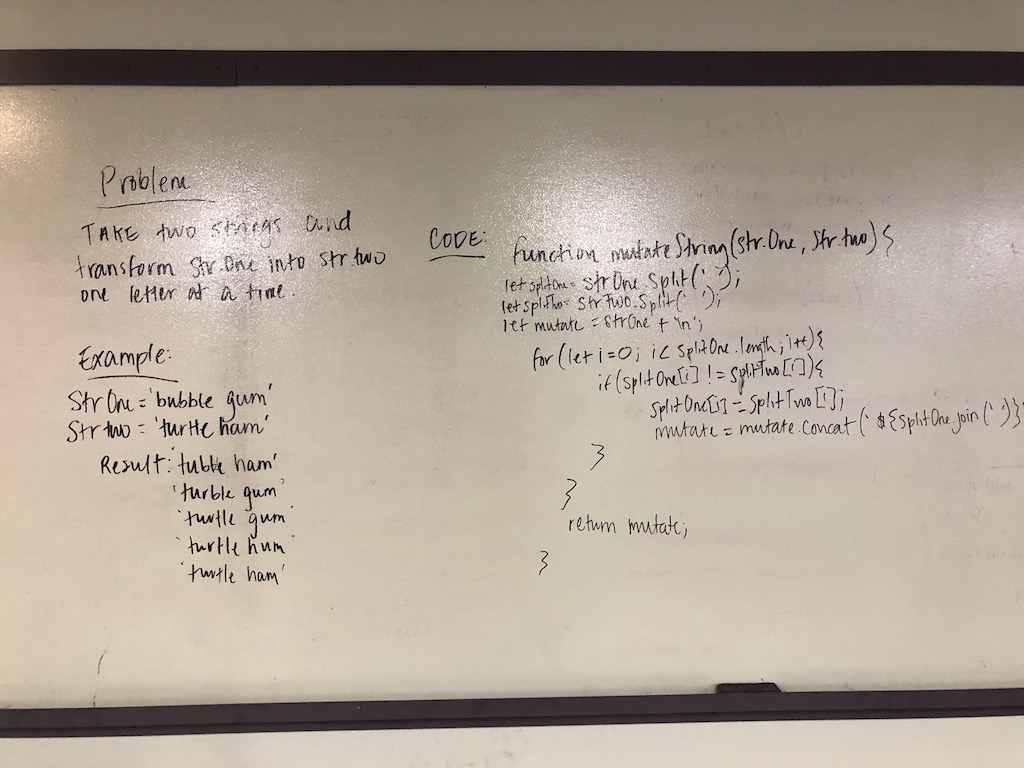 Problem
TAKE two strings and
transform Str.One into str.two
one letter at a time.
Example:
StrOne = 'bubble gum'
Strtwo = 'turtle ham'
Result: 'tubble ham'
'turble gum'
'turtle gum'
'turtle hum'
'turtle ham'
CODE:
function mutateString(str.One, Str.two) {
let splitOne = strOne.Split(' ');
let splitTwo = strTwo.Split(' ');
let mutate = StrOne + '\n';
for (let i=0; i< SplitOne.length; i++){
if (splitOne[i] != splitTwo[i]){
splitOne[i] = SplitTwo[i];
mutate = mutate.concat(`${SplitOne.join(' ')}
}
}
return mutate;
}